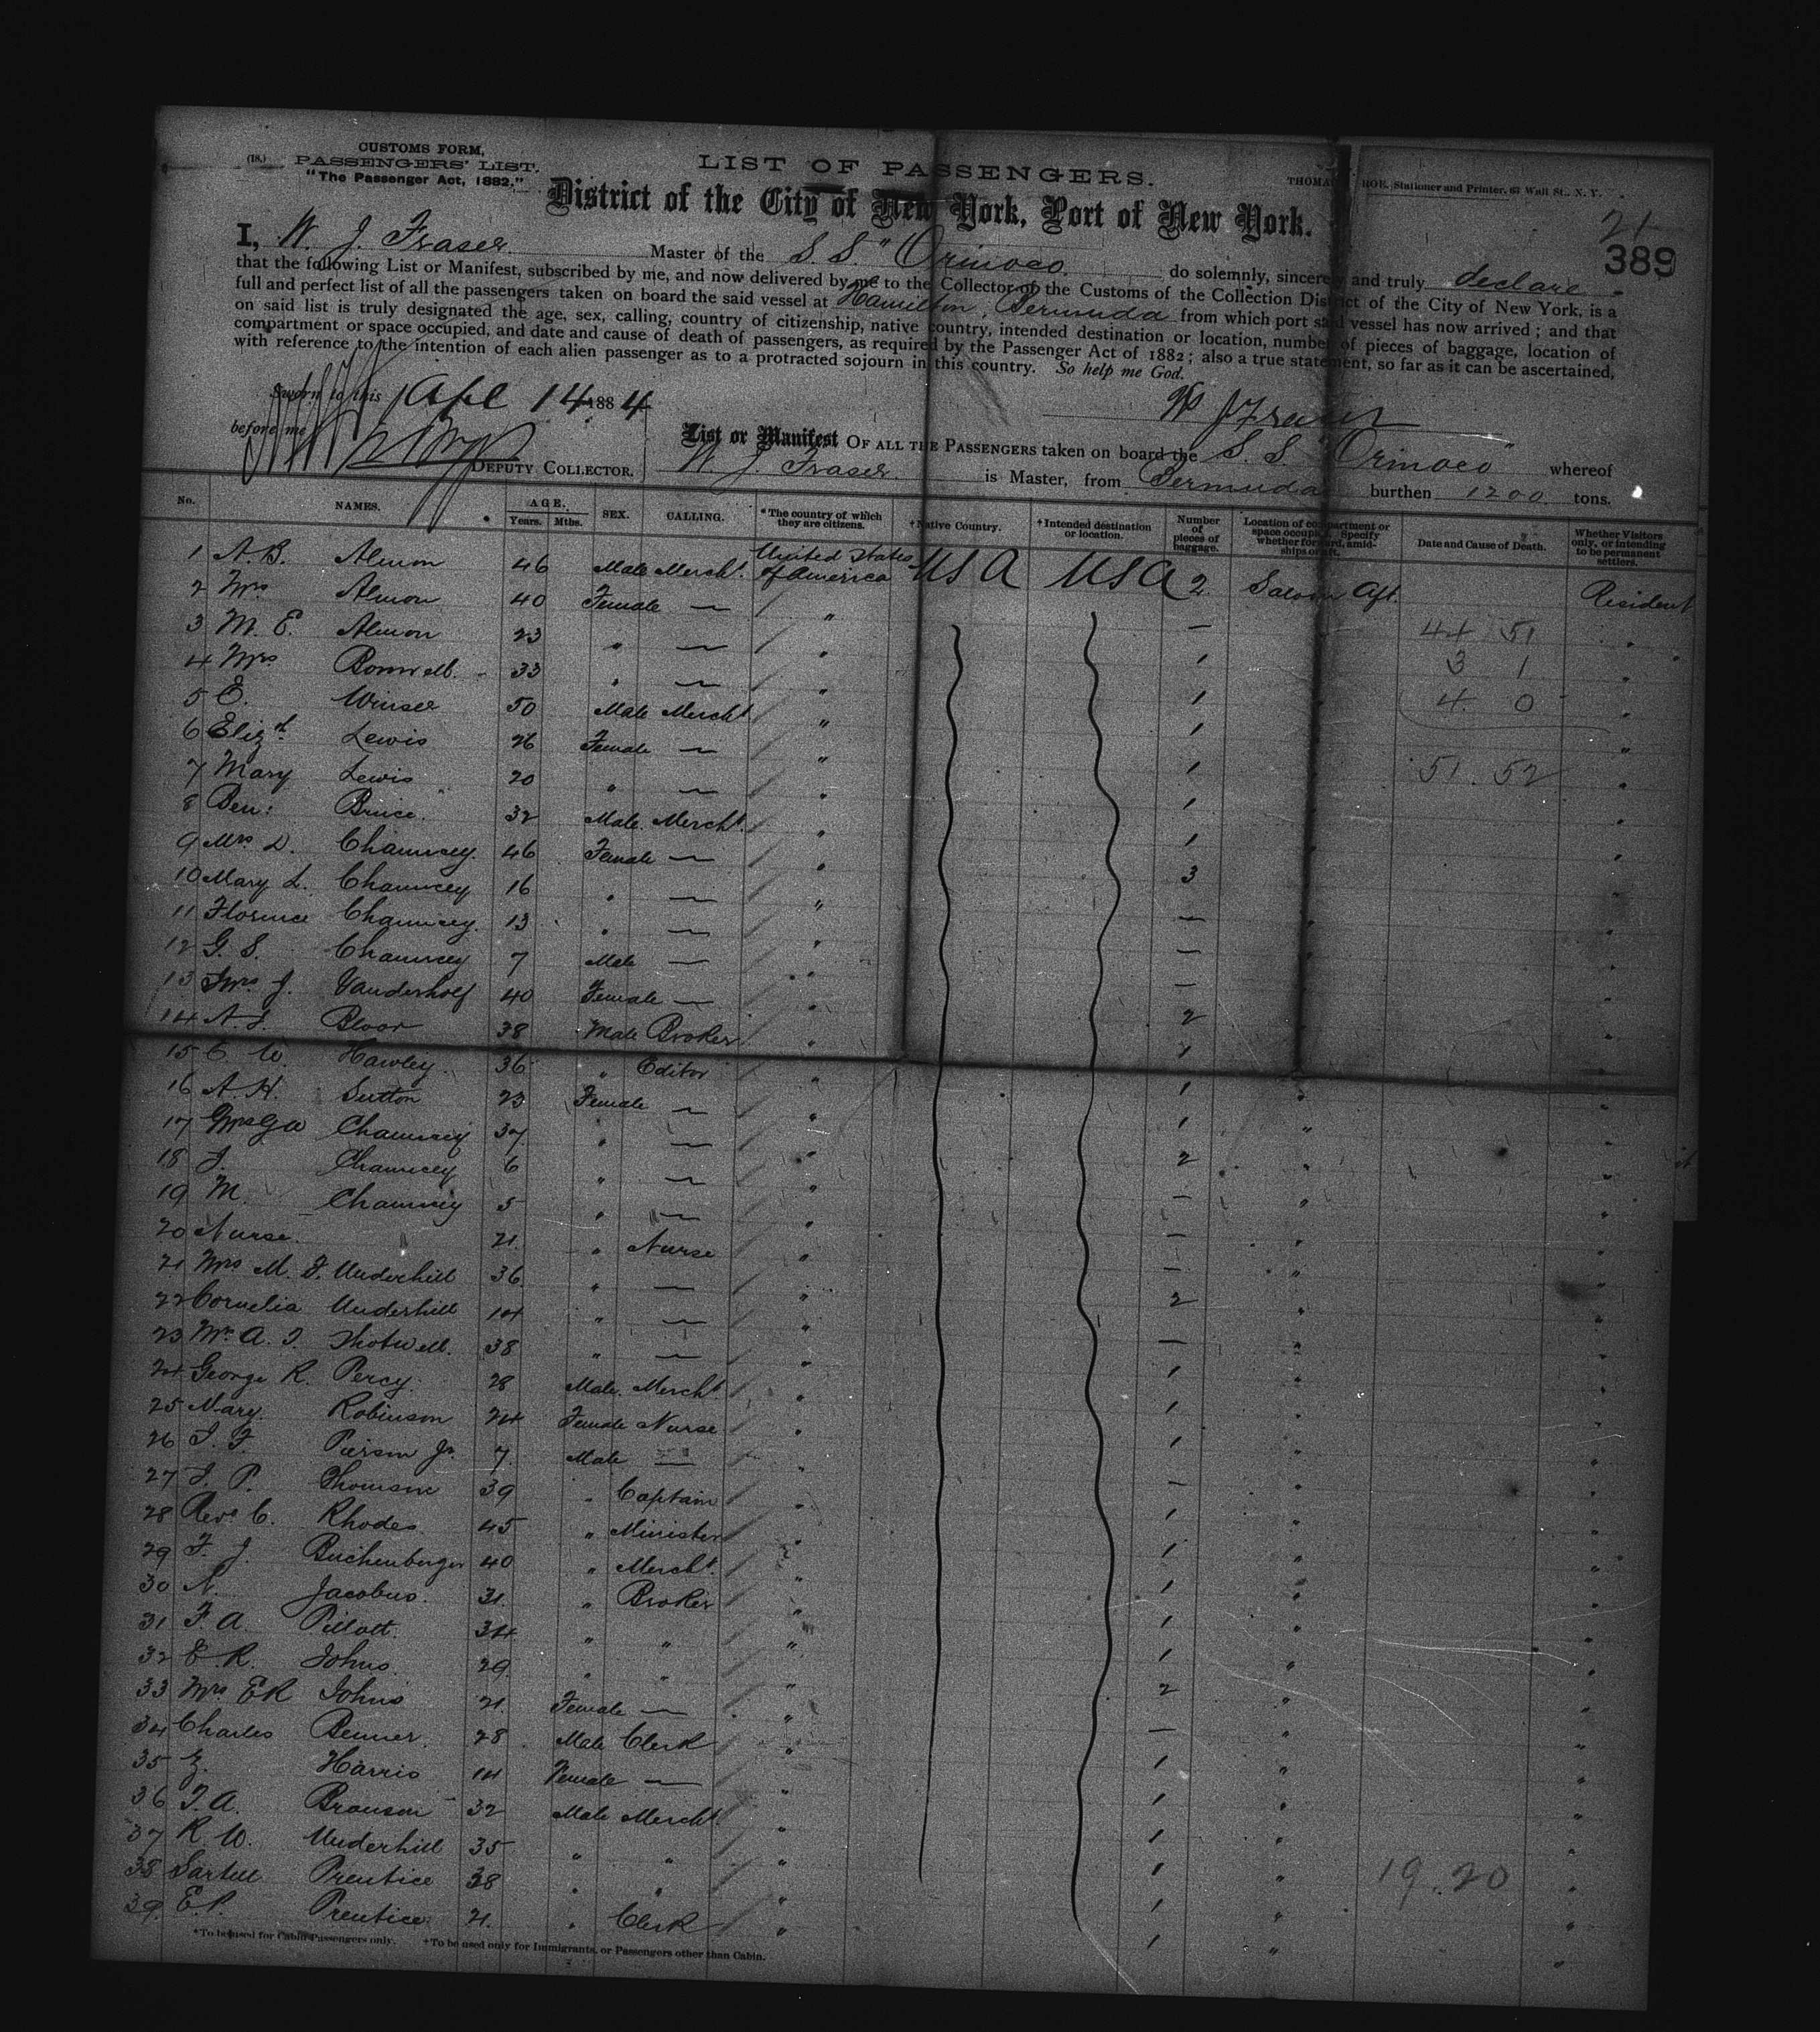 (18.)
CUSTOMS FORM,
PASSENGERS' LIST.
"The Passenger Act, 1882."
LIST OF PASSENGERS.
THOMAS ROE, Stationer and Printer, 63 Wall St., N. Y.
District of the City of New York, Port of New York.
21
389
I, W. J. Fraser Master of the S. S. "Orinoco do solemnly, sincerely and truly declare
that the following List or Manifest, subscribed by me, and now delivered by me to the Collector of the Customs of the Collection District of the City of New York, is a
full and perfect list of all the passengers taken on board the said vessel at Hamilton, Bermuda from which port said vessel has now arrived; and that
on said list is truly designated the age, sex, calling, country of citizenship, native country, intended destination or location, number of pieces of baggage, location of
compartment or space occupied, and date and cause of death of passengers, as required by the Passenger Act of 1882; also a true statement, so far as it can be ascertained,
with reference to the intention of each alien passenger as to a protracted sojourn in this country. So help me God.
Sworn to this Apl 14 1884
W J Fraser
before me
DEPUTY COLLECTOR.
List or Manifest OF ALL THE PASSENGERS taken on board the S. S. "Orinoco" whereof
W. J. Fraser is Master, from Bermuda burthen 1200 tons.
No. NAMES. AGE. Years. Mths. SEX. CALLING. *The country of which they are citizens. †Native Country. †Intended destination or location. Number of pieces of baggage. Location of compartment or space occupied. Specify whether forward, amidships or aft. Date and Cause of Death. Whether Visitors only, or intending to be permanent settlers.
1 A. B. Almon 46 Male Mercht. United States of America USA USA 2 Saloon Aft. Resident
2 Mrs Almon 40 Female — " — "
3 M. E. Almon 23 " — " 1 "
4 Mrs 33 " — " 1 "
5 E. 50 Male Mercht " 1 "
6 Elizth Lewis 26 Female — " 1 "
7 Mary Lewis 20 " — " 1 "
8 Ben: Bruce 32 Male. Mercht. " 1 "
9 Mrs D. Chauncey 46 Female — " 3 "
10 Mary L. Chauncey 16 " — " — "
11 Florence Chauncey 13 " — " — "
12 G. S. Chauncey 7 Male — " — "
13 Mrs J. Vanderhoff 40 Female — " 2 "
14 Bloor 38 Male Broker " 1 "
15 C. W. Hawley 36 " Editor " 1 "
16 A. H. Sutton 23 Female — " 1 " "
17 Mrs Chauncey 37 " — " 2 " "
18 J. Chauncey 6 " — " — " "
19 M. Chauncey 5 " — " — " "
20 Nurse. 21 " Nurse " — " "
21 Mrs M. F. Underhill 36 " — " 2 " "
22 Cornelia Underhill 14 " — " — " "
23 Shotwell. 38 " — " 1 " "
24 George R. Percy. 28 Male. Mercht. " 1 " "
25 Mary. Robinson 24 Female Nurse " 1 " "
26 J. F. Pierson Jr. 7 Male — " — " "
27 J. P. Thomson 39 " Captain " 1 " "
28 Revd C. Rhodes 45 " Minister " 1 " "
29 F. J. Buchenberger 40 " Mercht. " 1 " "
30 N. Jacobus. 31 " Broker " 1 " "
31 F. A. 34 " " " 1 " "
32 E. R. Johns. 29 " " " 2 " "
33 Mrs ER Johns 21. Female — " — " "
34 Charles Benner. 28 Male Clerk " 1 " "
35 Harris 14 Female — " 1 " "
36 Branson 32 Male Mercht. " 1 " "
37 R. W. Underhill 35 " " " 1 " "
38 Prentice 38 " " " 1 " "
39 E. P. Prentice 21. " Clerk " 1 " "
44 51
3 1
4 0
51 . 52
19 . 20
*To be used for Cabin Passengers only. †To be used only for Immigrants, or Passengers other than Cabin.